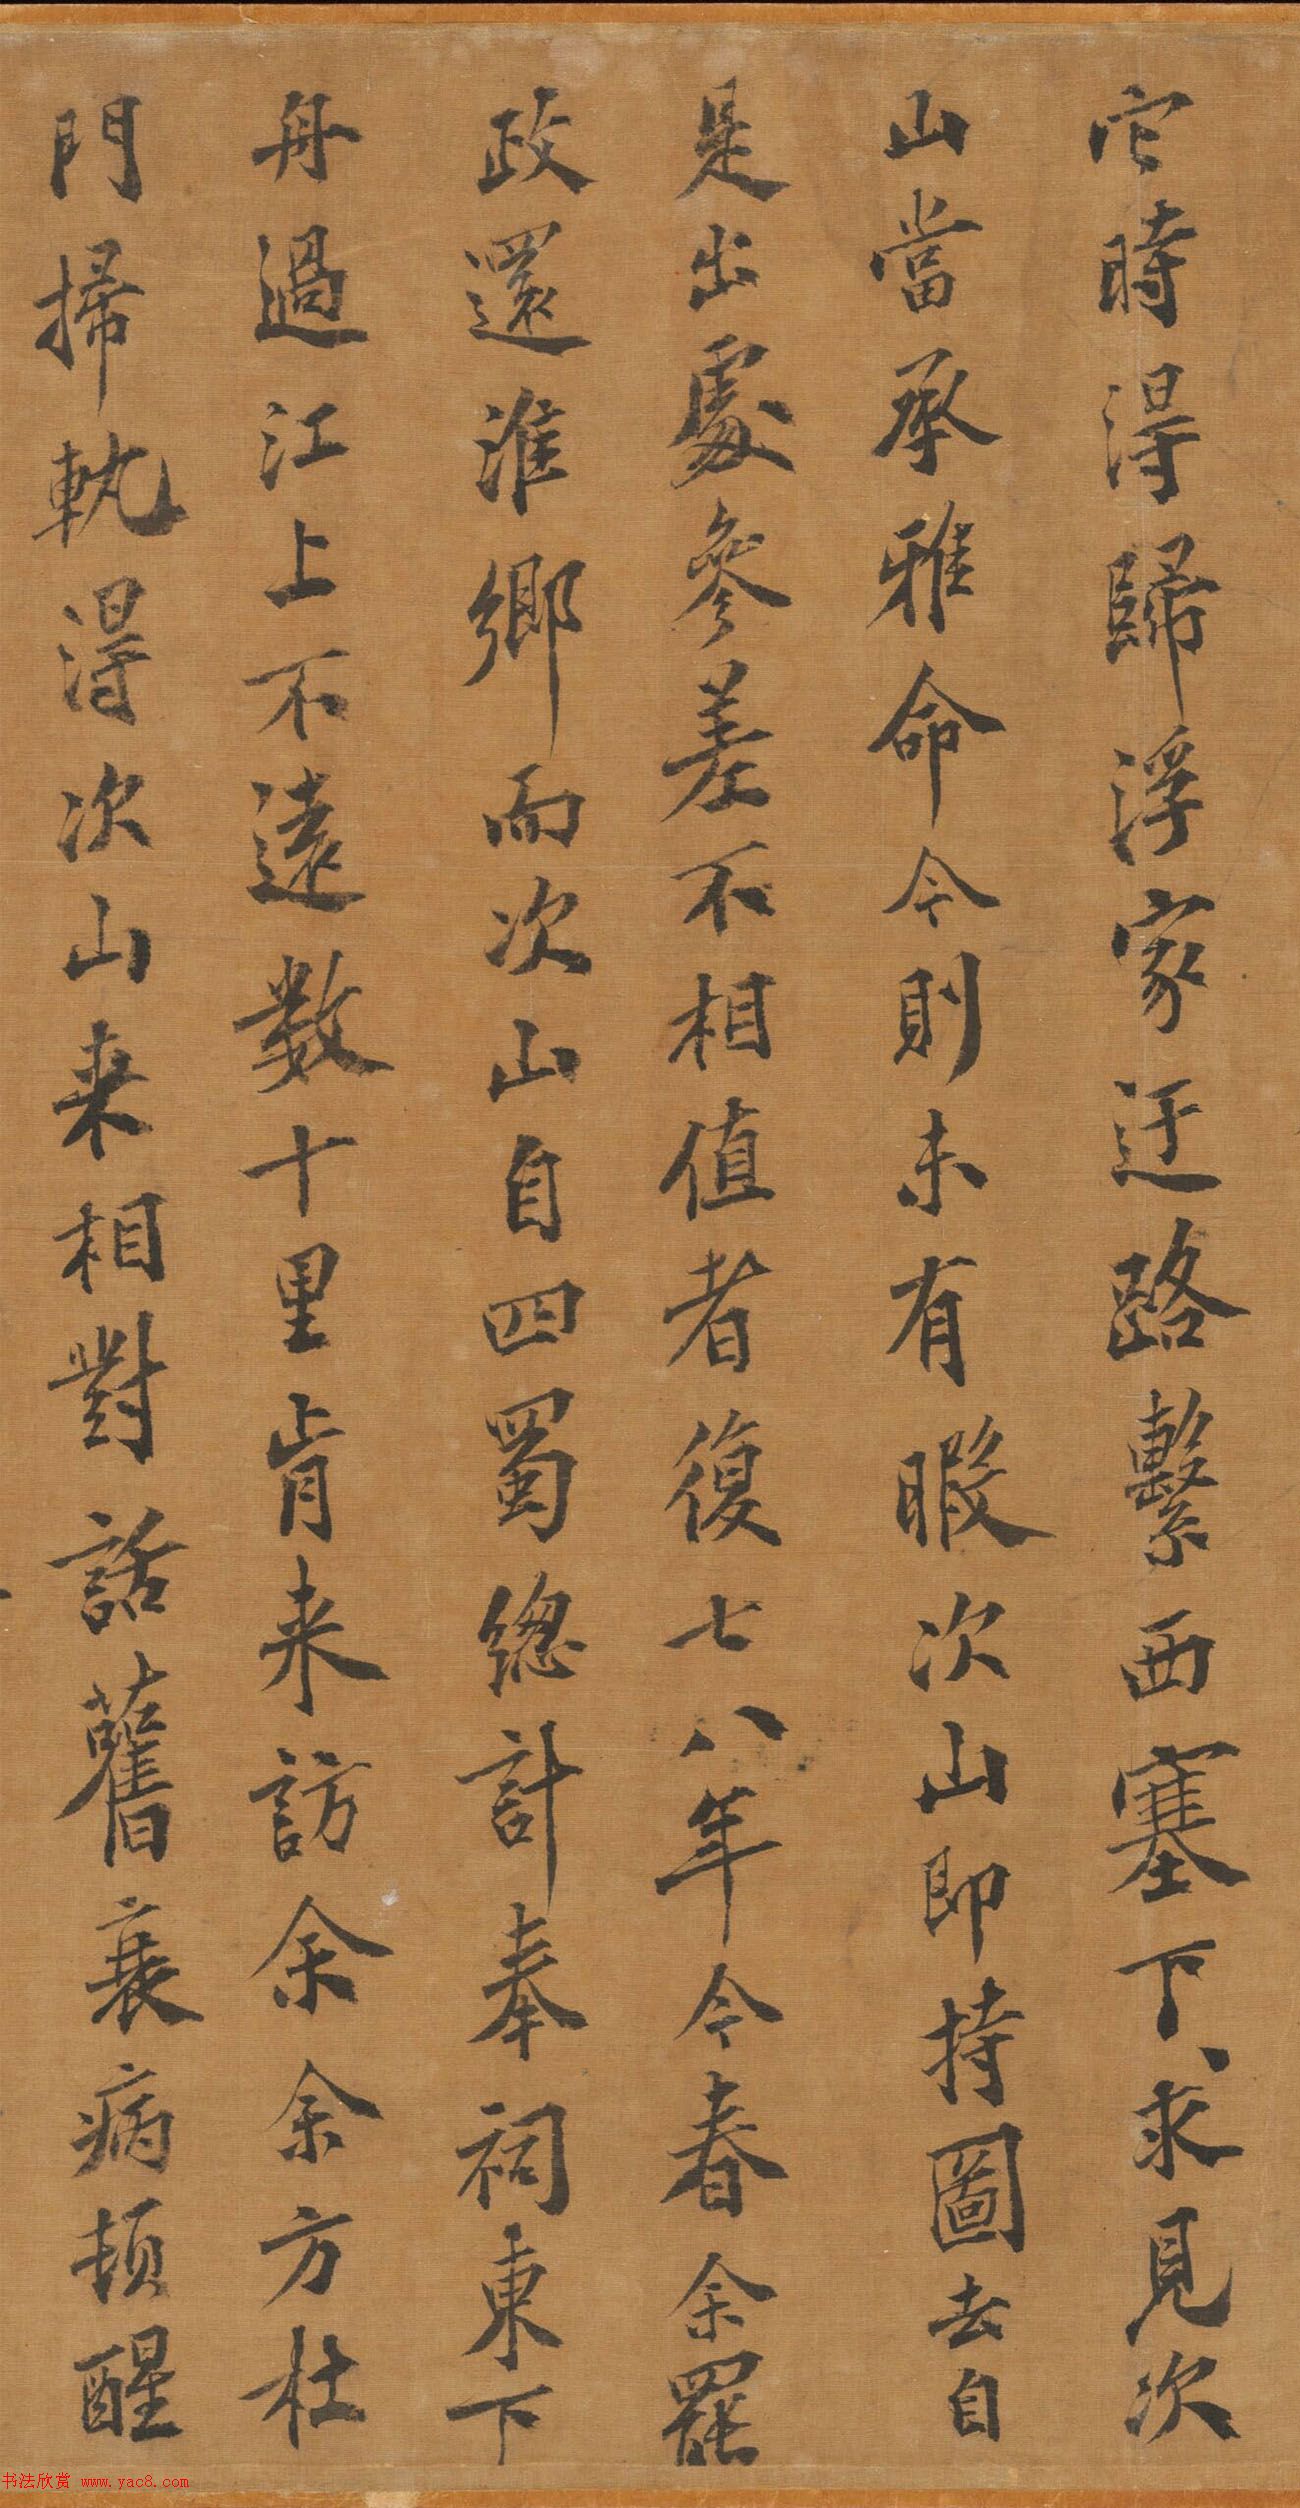 它時得歸浮家迂路繫西塞下求見次
山當承雅命今則未有暇次山即持圖去自
是出處參差不相值者復七八年今春余罷
政還淮鄉而次山自四蜀總計奉祠東下
舟過江上不遠數十里肯来訪余余方杜
門掃軌得次山来相對話舊衰病頓醒
书法欣赏 www.yac8.com